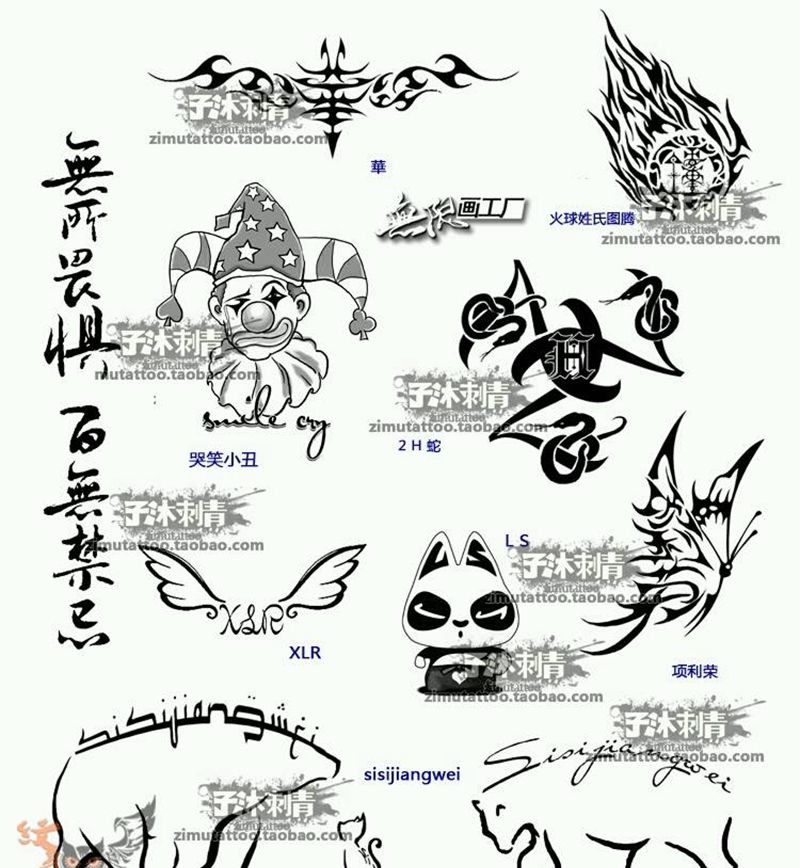 子沐刺青
zimutattoo
zimutattoo.taobao.com
華
無限画工厂
火球姓氏图腾
子沐刺青
zimutattoo
zimutattoo.taobao.com
無所畏惧
百無禁忌
子沐刺青
mutattoo.taobao.com
smile cry
哭笑小丑
子沐刺青
zimutattoo
zimutattoo.taobao.com
H
2 H 蛇
子沐刺青
zimutattoo
zimutattoo.taobao.com
L S
子沐刺青
zimutattoo
zimutattoo.taobao.com
XLR
XLR
子沐刺青
zimutattoo
zimutattoo.taobao.com
项利荣
sisijiangwei
sisijiangwei
Sisijiangwei
子沐刺青
zimutattoo
zimutattoo.taobao.com
子沐刺青
zimutattoo
zimutattoo.taobao.com